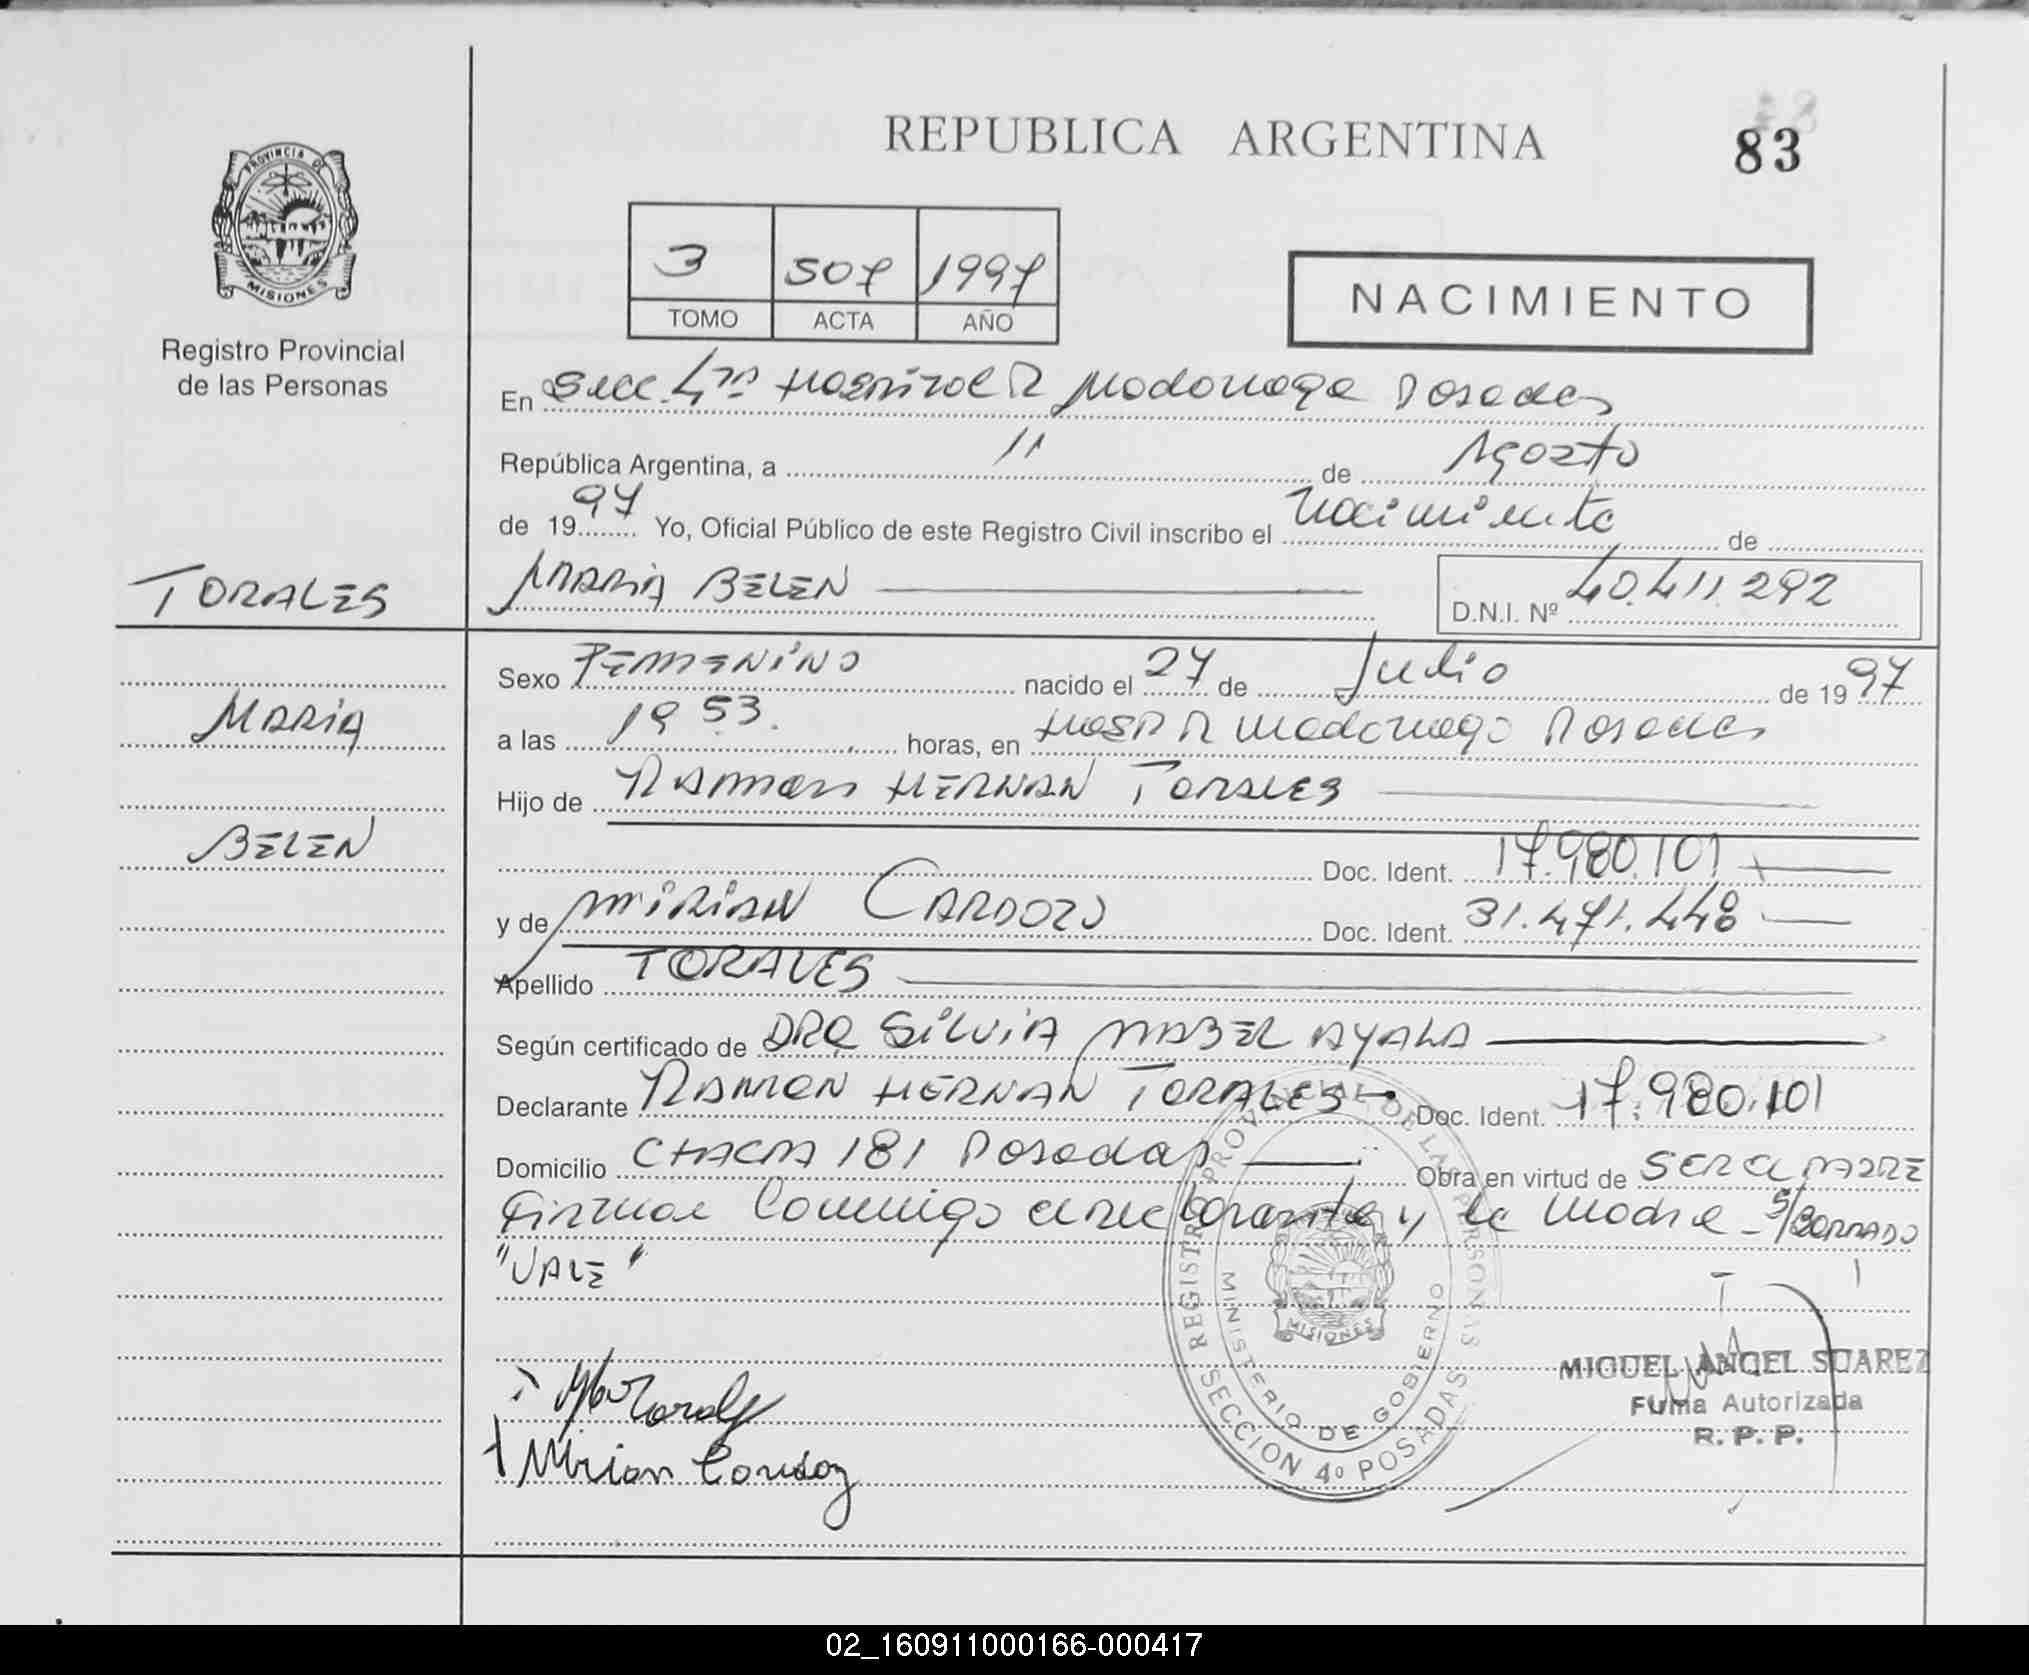 REPUBLICA ARGENTINA
83
PROVINCIA DE MISIONES
Registro Provincial
de las Personas
3 507 1997
TOMO ACTA AÑO
NACIMIENTO
En Secc. 4ta Hospital R Madariaga Posadas
República Argentina, a 11 de Agosto
de 1997 Yo, Oficial Público de este Registro Civil inscribo el Nacimiento de
TORALES
MARIA BELEN
D.N.I. Nº 40.411.292
Sexo FEMENINO nacido el 27 de Julio de 1997
MARIA
a las 19 53. horas, en Hosp R Madariaga Posadas
Hijo de RAMON HERNAN TORALES
BELEN
Doc. Ident. 17.980.101
y de MIRIAN CARDOZO Doc. Ident. 31.471.448
Apellido TORALES
Según certificado de DRA SILVIA MABEL AYALA
Declarante RAMON HERNAN TORALES Doc. Ident. 17.980.101
Domicilio CHACRA 181 Posadas Obra en virtud de SER EL PADRE
Firman Conmigo el declarante y la Madre - S/BORRADO
"VALE"
REGISTRO PROVINCIAL DE LAS PERSONAS
MINISTERIO DE GOBIERNO
MISIONES
SECCION 4º POSADAS
MIGUEL ANGEL SUAREZ
Firma Autorizada
R. P. P.
Mirian Cardoz
02_160911000166-000417